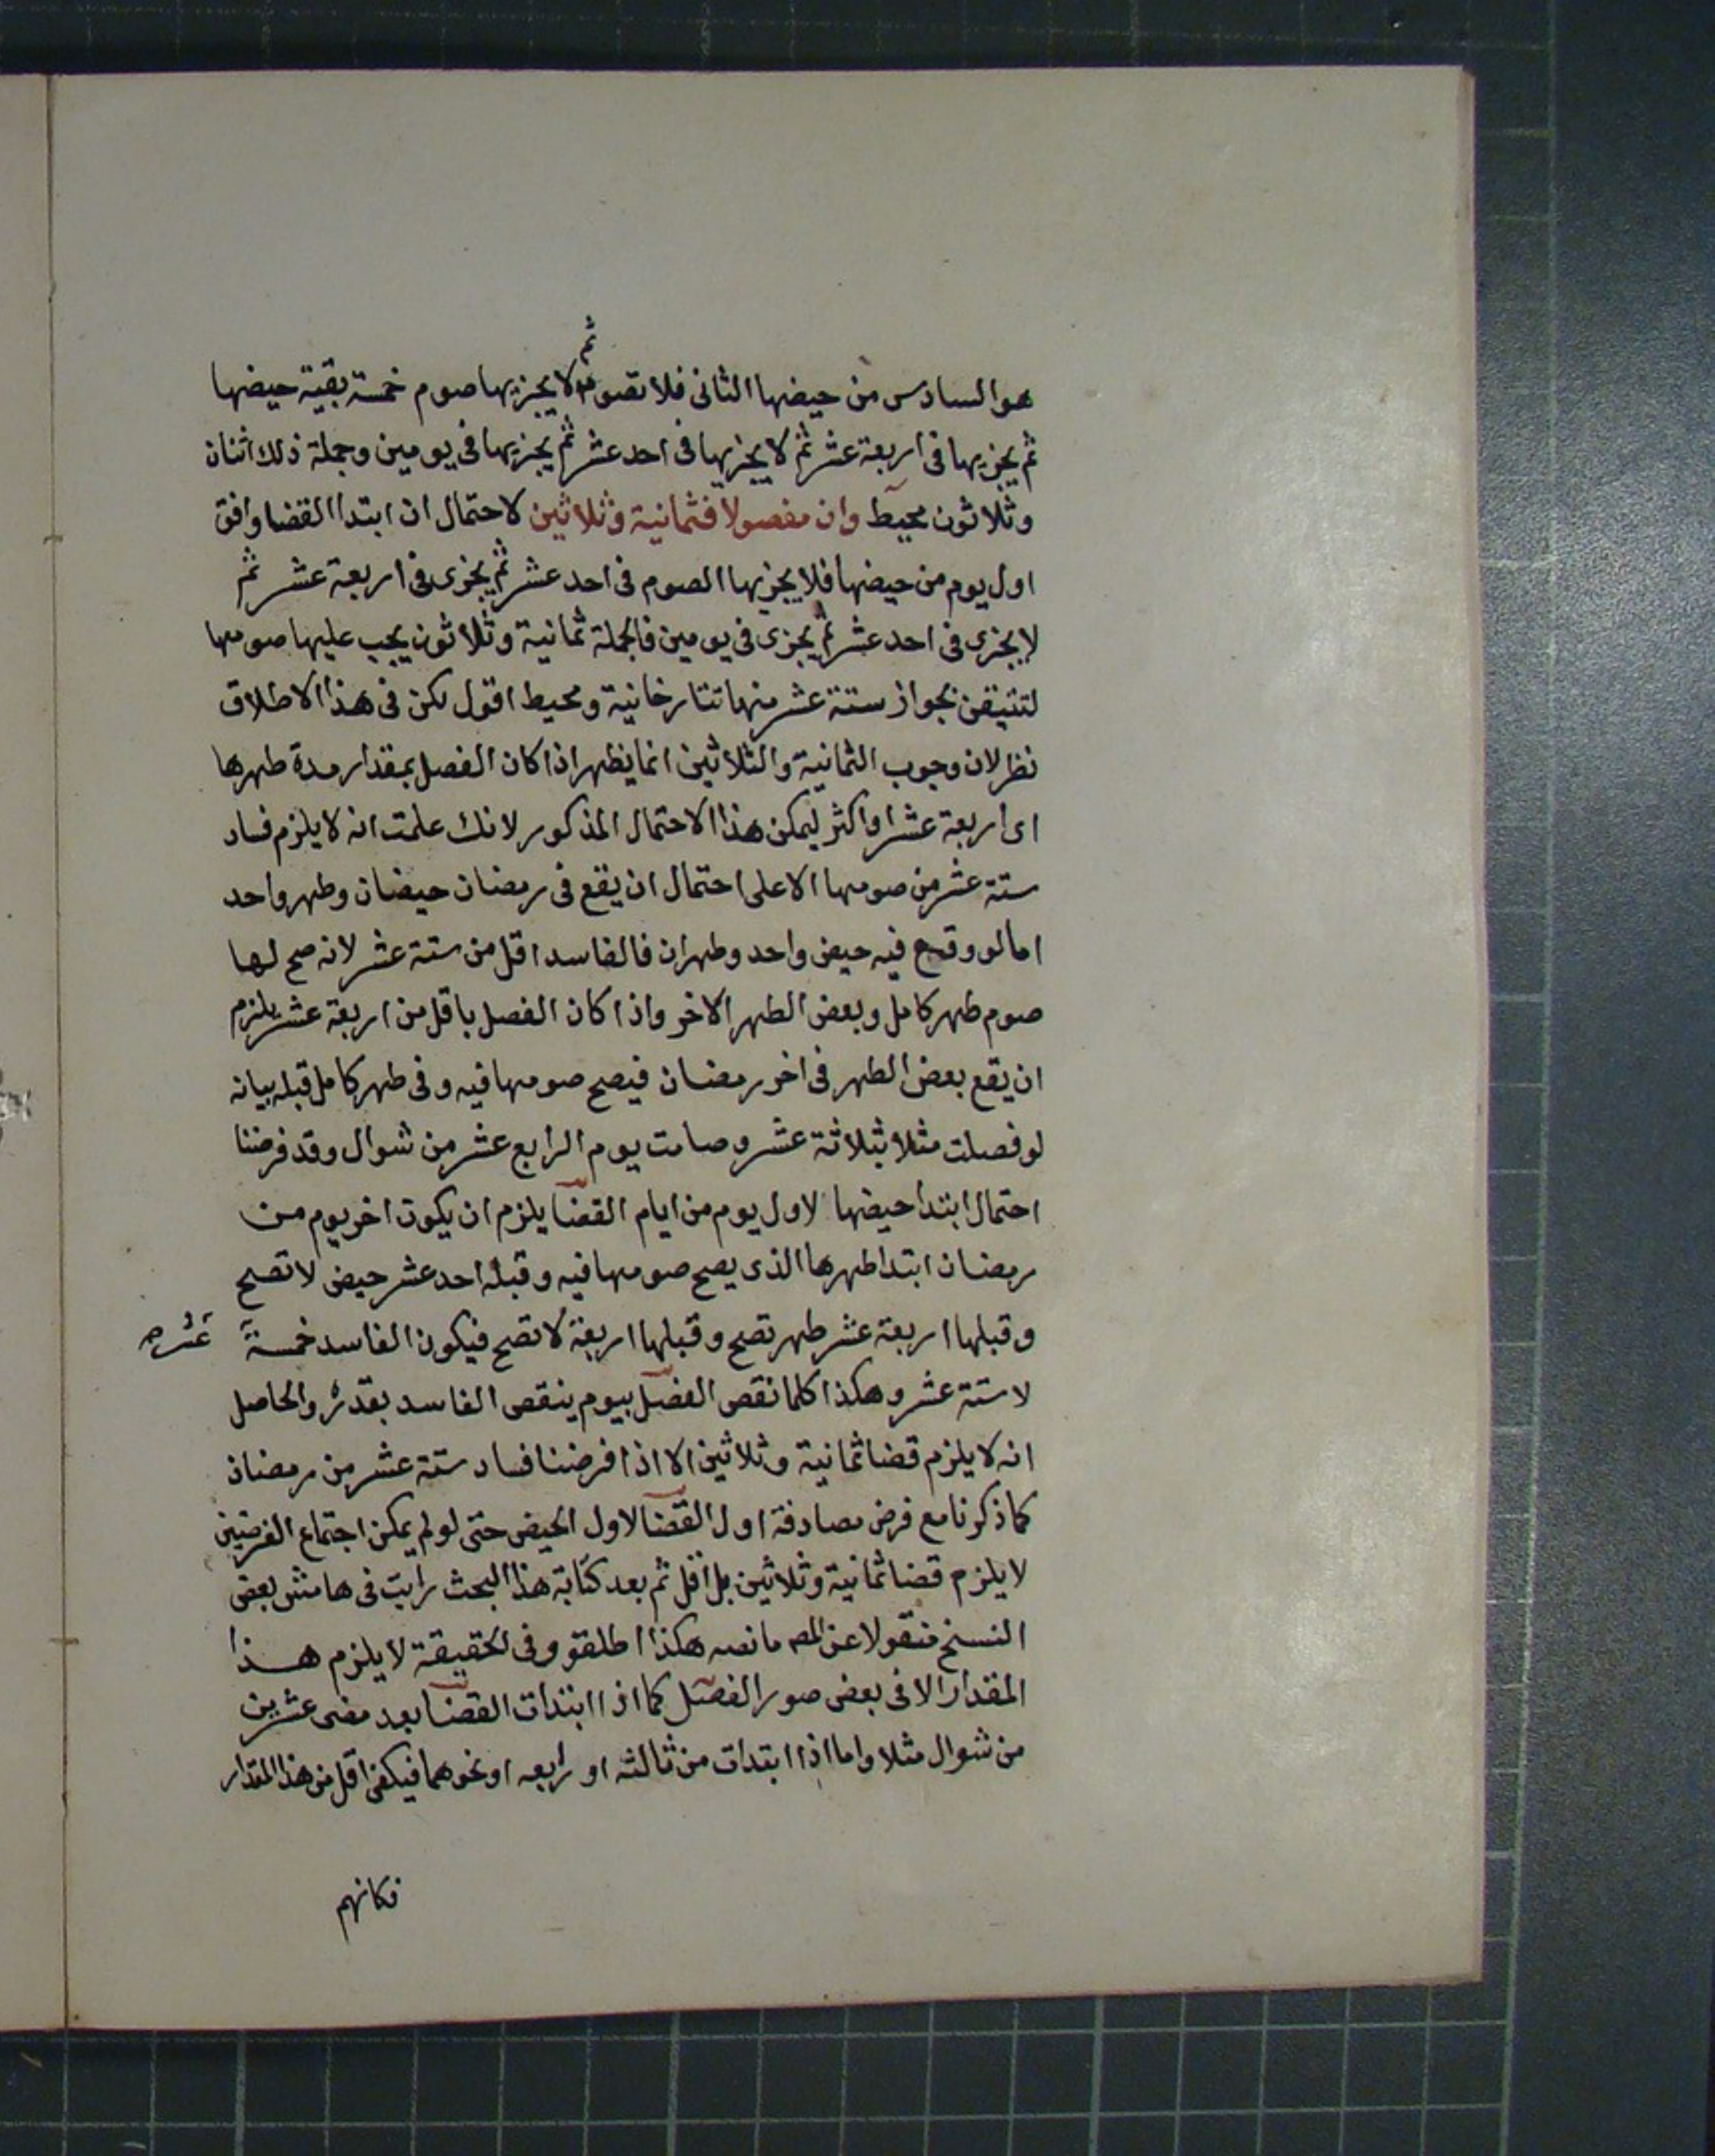 ثم
هو السادس من حيضها الثانى فلا تصوم لا يجزيها صوم خمسة بقية حيضها
ثم يجزيها فى اربعة عشر ثم لا يجزيها فى احد عشر ثم يجزيها فى يومين وجملة ذلك اثنان
وثلاثون محيط وان مفصولا فثمانية وثلاثين لاحتمال ان ابتدا القضا وافق
اول يوم من حيضها فلا يجزيها الصوم فى احد عشر ثم يجزى فى اربعة عشر ثم
لا يجزى فى احد عشر ثم يجزى فى يومين فالجملة ثمانية وثلاثون يجب عليها صومها
لتتيقن بجواز ستة عشر منها تتارخانية ومحيط اقول لكن فى هذا الاطلاق
نظر لان وجوب الثمانية والثلاثين انما يظهر اذا كان الفصل بمقدار مدة طهرها
اى اربعة عشر او اكثر ليمكن هذا الاحتمال المذكور لانك علمت انه لا يلزم فساد
ستة عشر من صومها الا على احتمال ان يقع فى رمضان حيضان وطهر واحد
اما لو وقع فيه حيض واحد وطهران فالفاسد اقل من ستة عشر لانه صح لها
صوم طهر كامل وبعض الطهر الاخر واذا كان الفصل باقل من اربعة عشر يلزم
ان يقع بعض الطهر فى اخر رمضان فيصح صومها فيه وفى طهر كامل قبله بيانه
لو فصلت مثلا بثلاثة عشر وصامت يوم الرابع عشر من شوال وقد فرضنا
احتمال ابتدا حيضها لاول يوم من ايام القضا يلزم ان يكون اخر يوم من
رمضان ابتدا طهرها الذى يصح صومها فيه وقبله احد عشر حيض لا تصح
وقبلها اربعة عشر طهر تصح وقبلها اربعة لا تصح فيكون الفاسد خمسة عشر صح
لا ستة عشر وهكذا كلما نقص الفصل بيوم ينقص الفاسد بقدره والحاصل
انه لا يلزم قضا ثمانية وثلاثين الا اذا فرضنا فساد ستة عشر من رمضان
كما ذكرنا مع فرض مصادفة اول القضا لاول الحيض حتى لو لم يمكن اجتماع الفرضين
لا يلزم قضا ثمانية وثلاثين بل اقل ثم بعد كتابة هذا البحث رايت فى هامش بعض
النسخ منقولا عن المصـ ما نصه هكذا اطلقو وفى الحقيقة لا يلزم هذا
المقدار الا فى بعض صور الفصل كما اذا ابتدات القضا بعد مضى عشرين
من شوال مثلا واما اذا ابتدات من ثالثه او رابعه او نحوهما فيكفى اقل من هذا المقدار
فكانهم